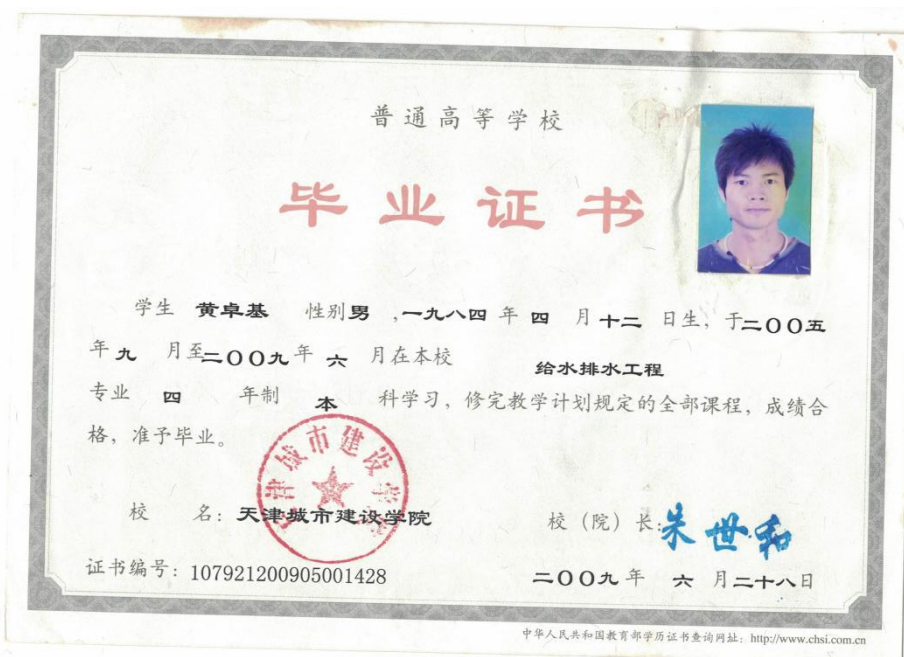 普通高等学校
毕业证书
学生 黄卓基 性别男,一九八四 年 四 月十二 日生,于二〇〇五
年九 月至二〇〇九年 六 月在本校 给水排水工程
专业 四 年制 本 科学习,修完教学计划规定的全部课程,成绩合
格,准予毕业。
天津城市建设学院
校 名:天津城市建设学院 校(院)长:朱世和
证书编号:107921200905001428 二〇〇九年 六 月二十八日
中华人民共和国教育部学历证书查询网址:http://www.chsi.com.cn